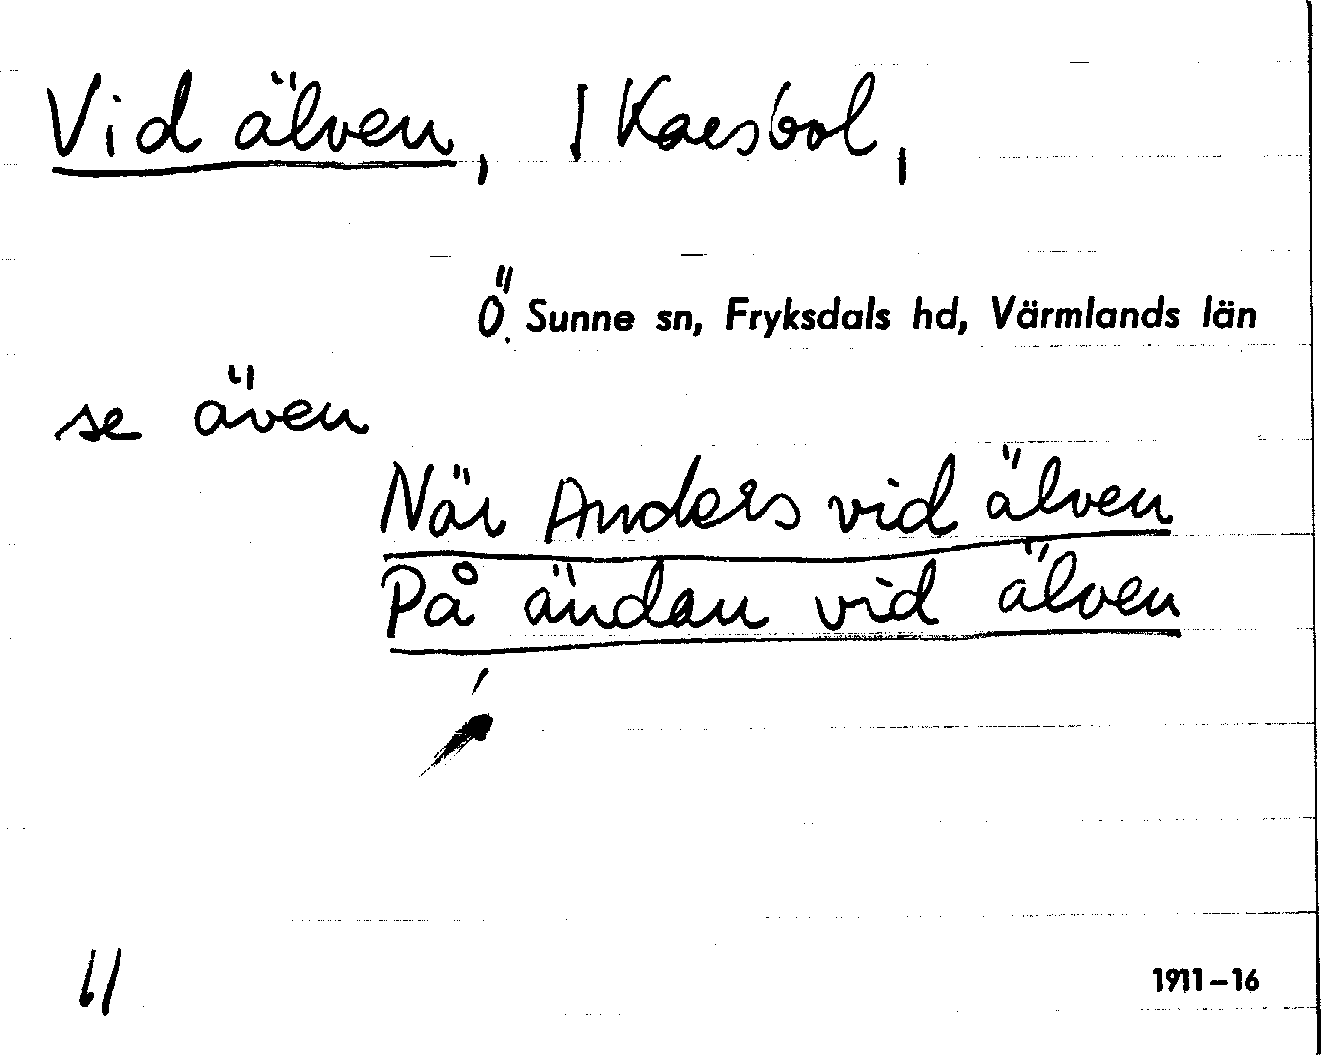 Vid älven, 1 Karsbol,
Ö. Sunne sn, Fryksdals hd, Värmlands län
se även
När Anders vid älven
På ändan vid älven
61
1911–16